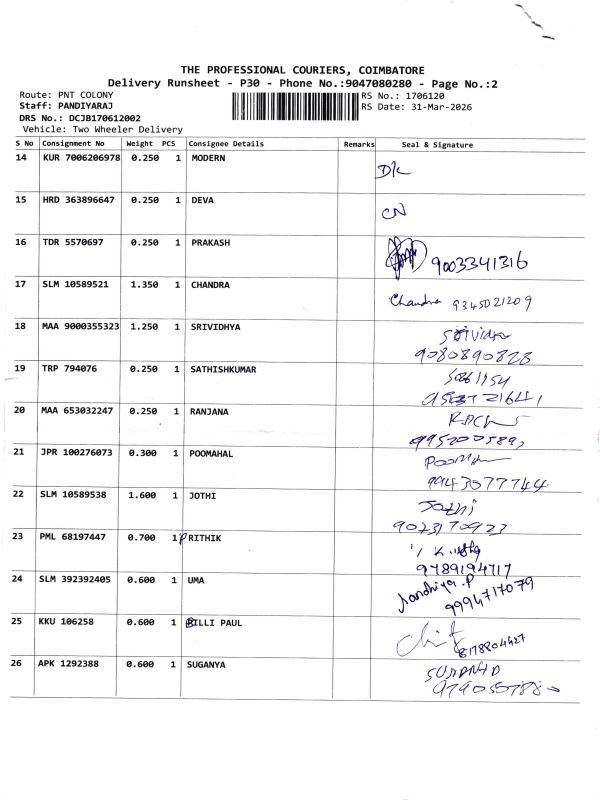 THE PROFESSIONAL COURIERS, COIMBATORE
Delivery Runsheet - P30 - Phone No.:9047080280 - Page No.:2
Route: PNT COLONY
Staff: PANDIYARAJ
DRS No.: DCJB170612002
Vehicle: Two Wheeler Delivery
RS No.: 1706120
RS Date: 31-Mar-2026
S No Consignment No Weight PCS Consignee Details Remarks Seal & Signature
14 KUR 7006206978 0.250 1 MODERN
15 HRD 363896647 0.250 1 DEVA CN
16 TDR 5570697 0.250 1 PRAKASH 9003341316
17 SLM 10589521 1.350 1 CHANDRA Chandra 9345021209
18 MAA 9000355323 1.250 1 SRIVIDHYA
9080890828
19 TRP 794076 0.250 1 SATHISHKUMAR
20 MAA 653032247 0.250 1 RANJANA
21 JPR 100276073 0.300 1 POOMAHAL
9943577744
22 SLM 10589538 1.600 1 JOTHI Jothi
23 PML 68197447 0.700 1 PRITHIK
9789194717
24 SLM 392392405 0.600 1 UMA Nandhiya.P
9994717079
25 KKU 106258 0.600 1 BILLI PAUL
26 APK 1292388 0.600 1 SUGANYA